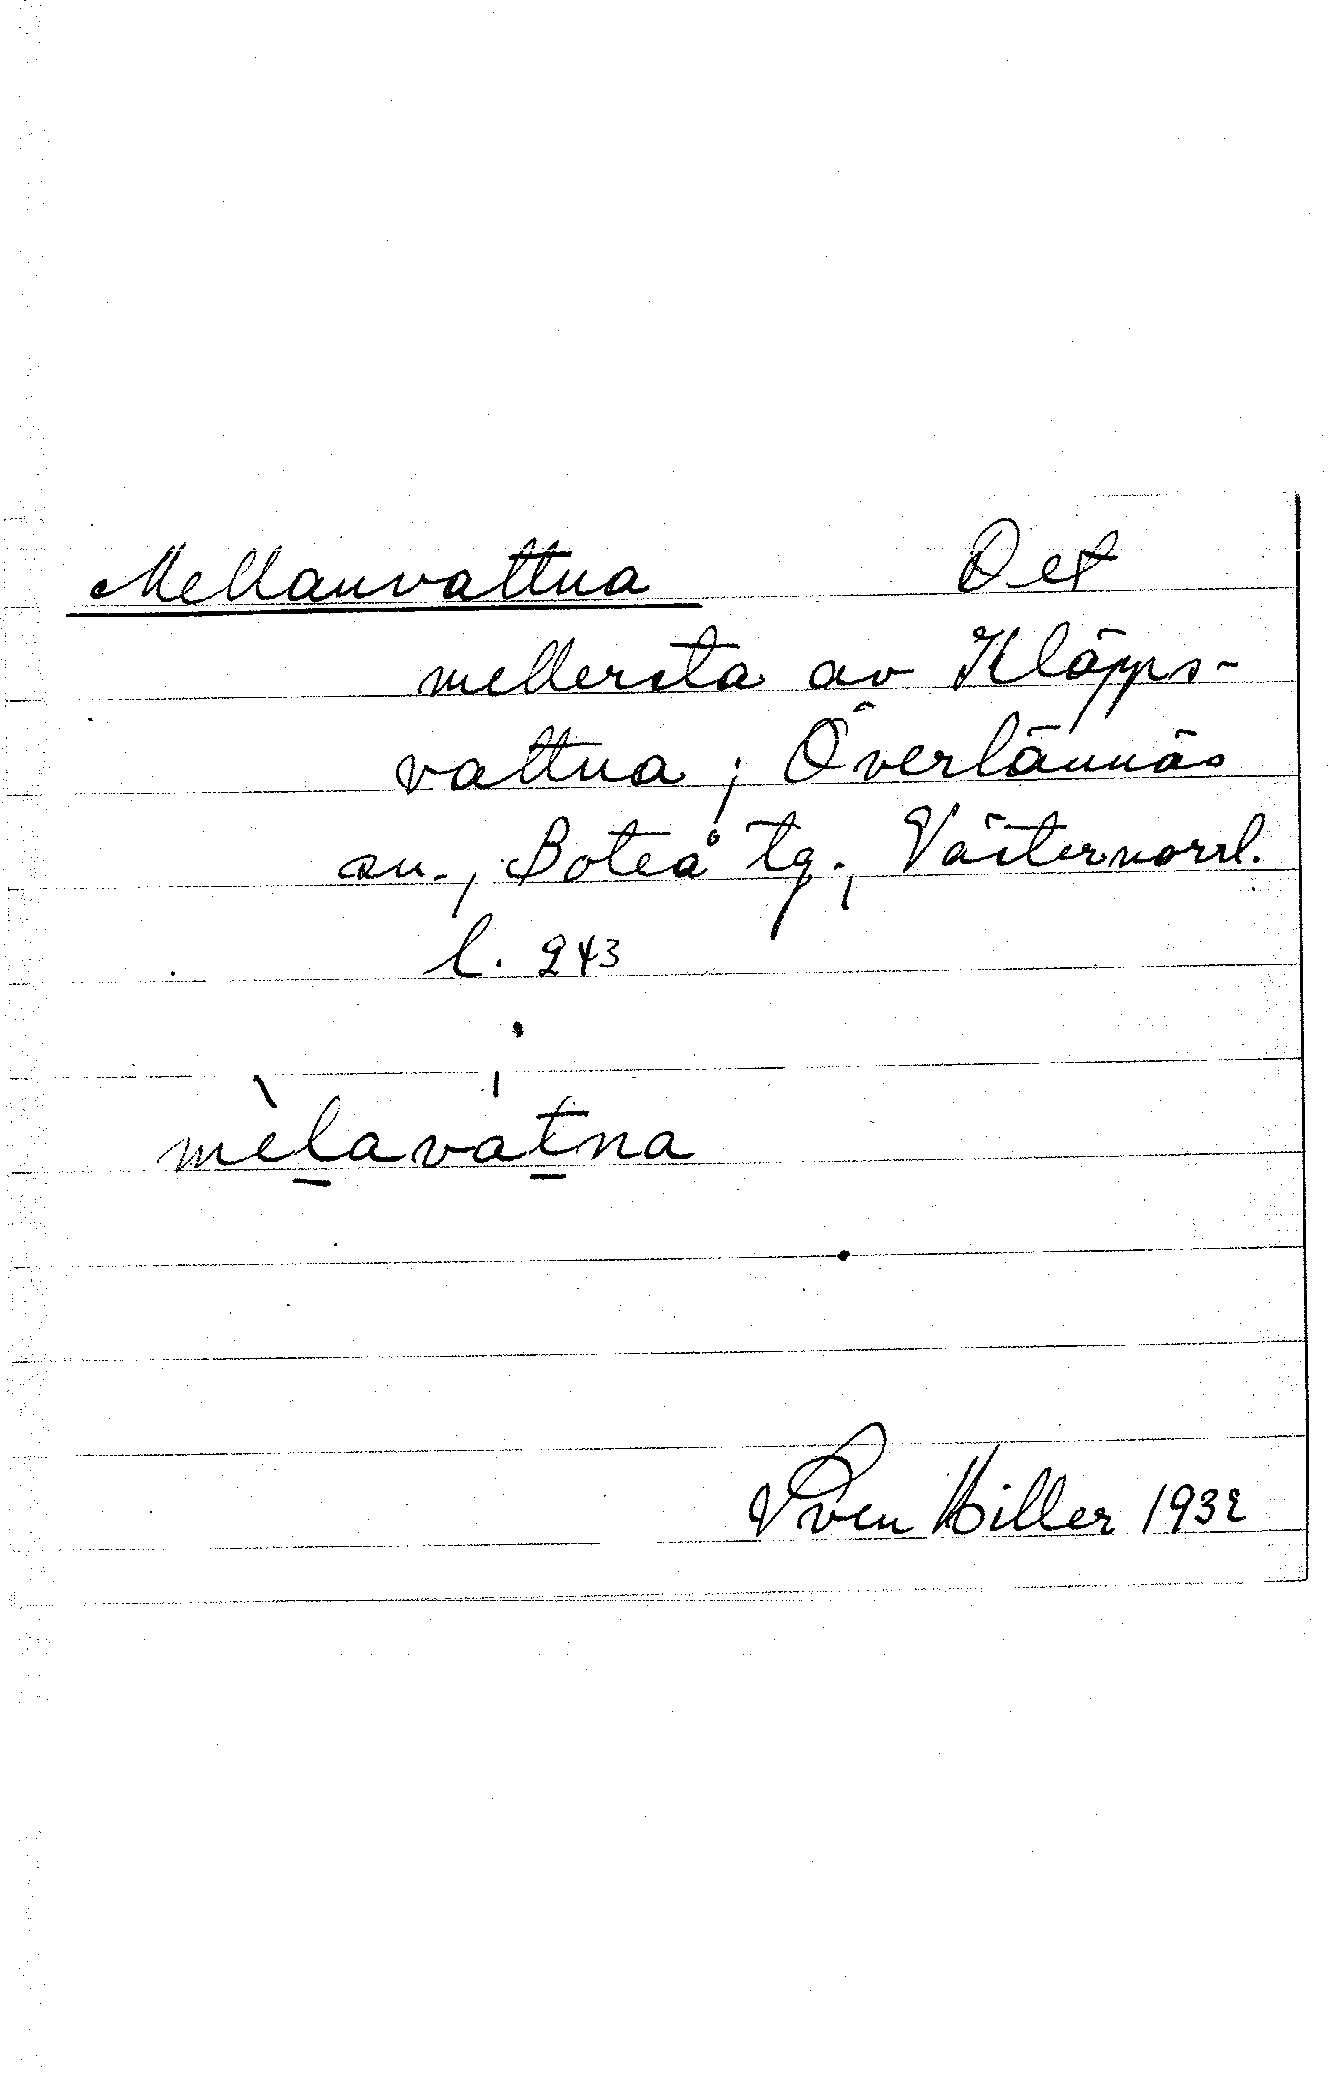 Mellanvattna Det
mellersta av Kläpps-
vattna; Överlännäs
sn., Boteå tg., Västernorrl.
l. 243
mèl̲avát̲na
Sven Hiller 1932